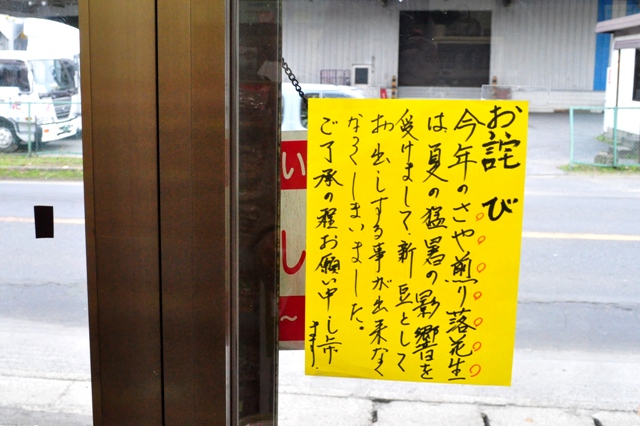 お詫び
今年のさや煎り落花生
は、夏の猛暑の影響を
受けまして、新豆として
お出しする事が出来なく
なってしまいました。
ご了承の程お願い申し上げ
ます。
い
し
~